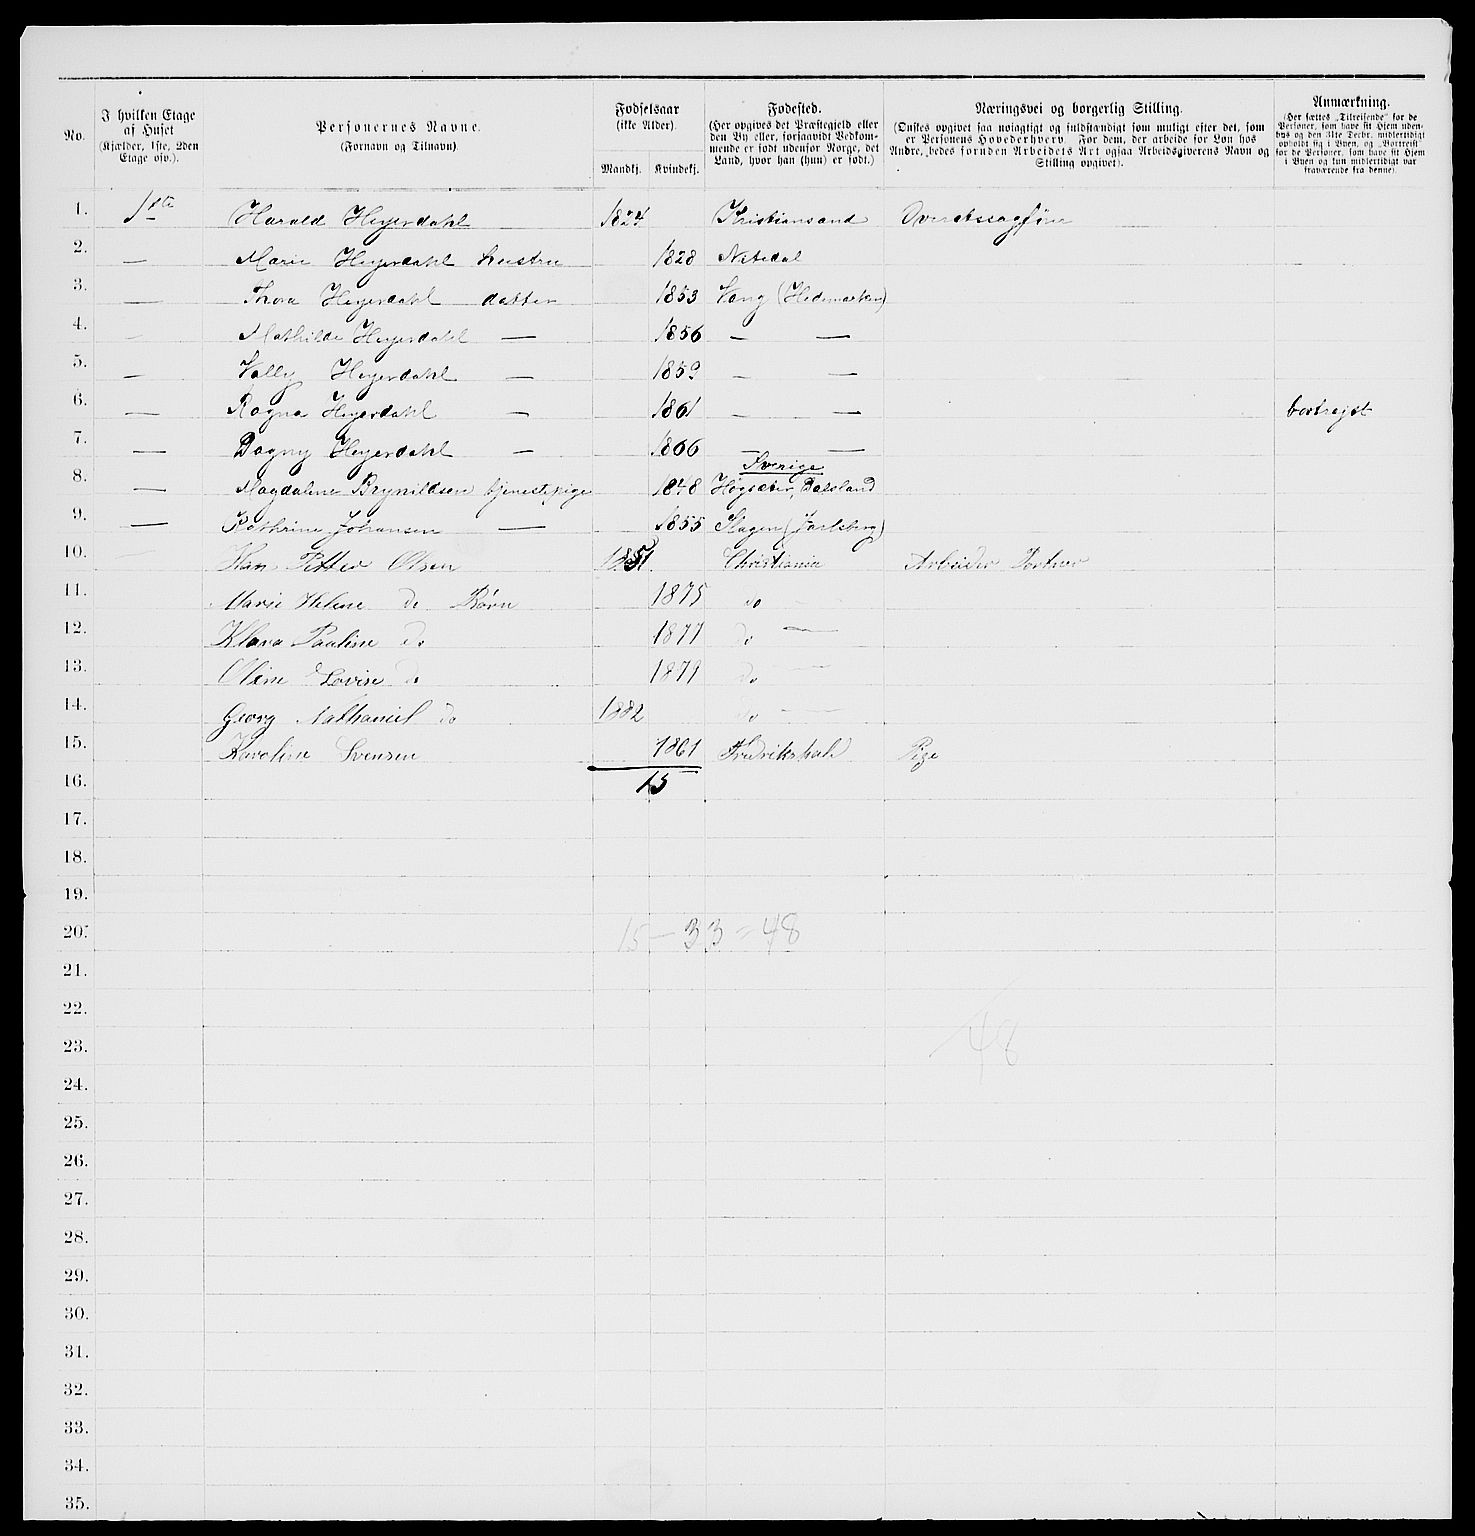 No. | I hvilken Etage af Huset (Kjælder, 1ste, 2den Etage osv.). | Personernes Navne. (Fornavn og Tilnavn). | Fødselsaar (ikke Alder). Mandkj. | Kvindekj. | Fødested. (Her opgives det Præstegjeld eller den By eller, forsaavidt Vedkommende er født udenfor Norge, det Land, hvor han (hun) er født.) | Næringsvei og borgerlig Stilling. (Ønskes opgivet saa nøiagtigt og fuldstændigt som muligt efter det, som er Personens Hovederhverv. For dem, der arbeide for Løn hos Andre, bedes foruden Arbeidets Art ogsaa Arbeidsgiverens Navn og Stilling opgivet). | Anmærkning. (Her sættes „Tilreisende" for de Personer, som have sit Hjem udenbys og den 31te Decbr. midlertidigt opholdt sig i Byen, og „Bortreist" for de Personer, som have sit Hjem i Byen og kun midlertidigt var fraværende fra denne).
1. 1ste Harald Heyerdahl 1824 Kristiansand Overetssagfører
2. — Marie Heyerdahl hustru 1828 Nitedal
3. — Thora Heyerdahl datter 1853 Vang (Hedemarken)
4. — Mathilde Heyerdahl — 1856 — —
5. — Vally Heyerdahl — 1859 — —
6. — Ragna Heyerdahl — 1861 — — bortrejst
7. — Dagny Heyerdahl — 1866 — —
Sverige
8. — Magdalene Brynildsen tjenestepige 1848 Høgsæter, Dalsland
9. — Kathrine Johansen — 1855 Slagen (Jarlsberg)
10. — Hans Petter Olsen 1851 Christiania Arbeider Portner
11. Marie Helene do Børn 1875 do
12. Klara Pauline do 1877 do —
13. Oline Lovise do 1879 do —
14. Georg Nathaniel do 1882 do —
15. Karoline Svensen 1861 Fredrikshald Pige
16. 15
17.
18.
19.
20. 15 — 33 = 48
21.
22.
23. 48
24.
25.
26.
27.
28.
29.
30.
31.
32.
33.
34.
35.